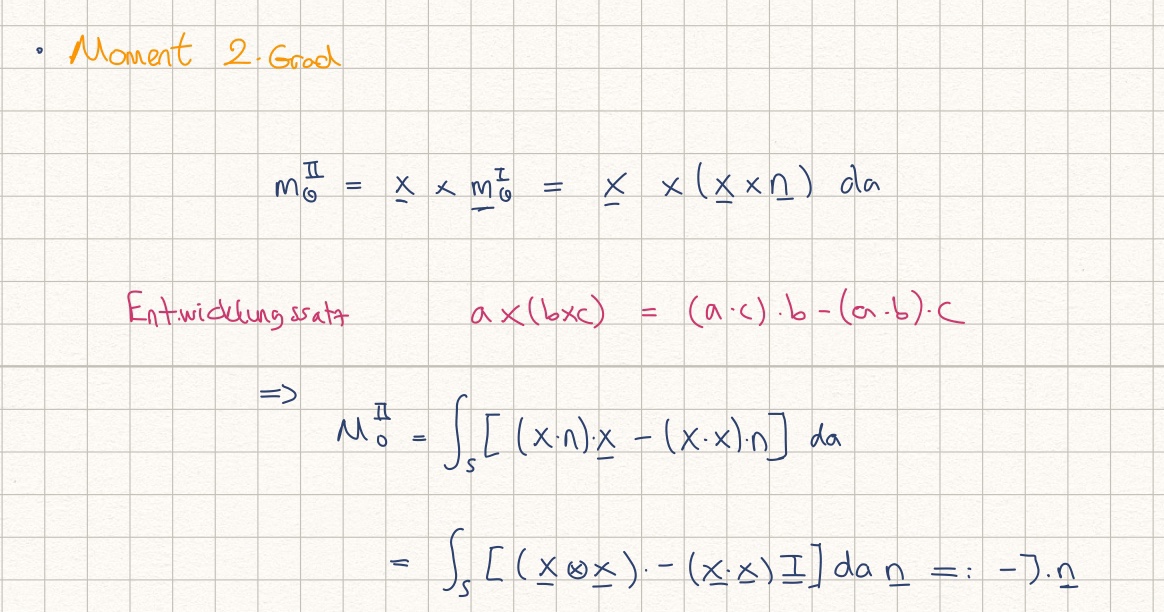 • Moment 2. Grad
m₀^II = x × m₀^I = x × (x × n) da
Entwicklungssatz a×(b×c) = (a·c)·b - (a·b)·c
=>
M₀^II = ∫_S [(x·n)·x - (x·x)·n] da
= ∫_S [(x⊗x)·- (x·x)I] da n =: -J·n